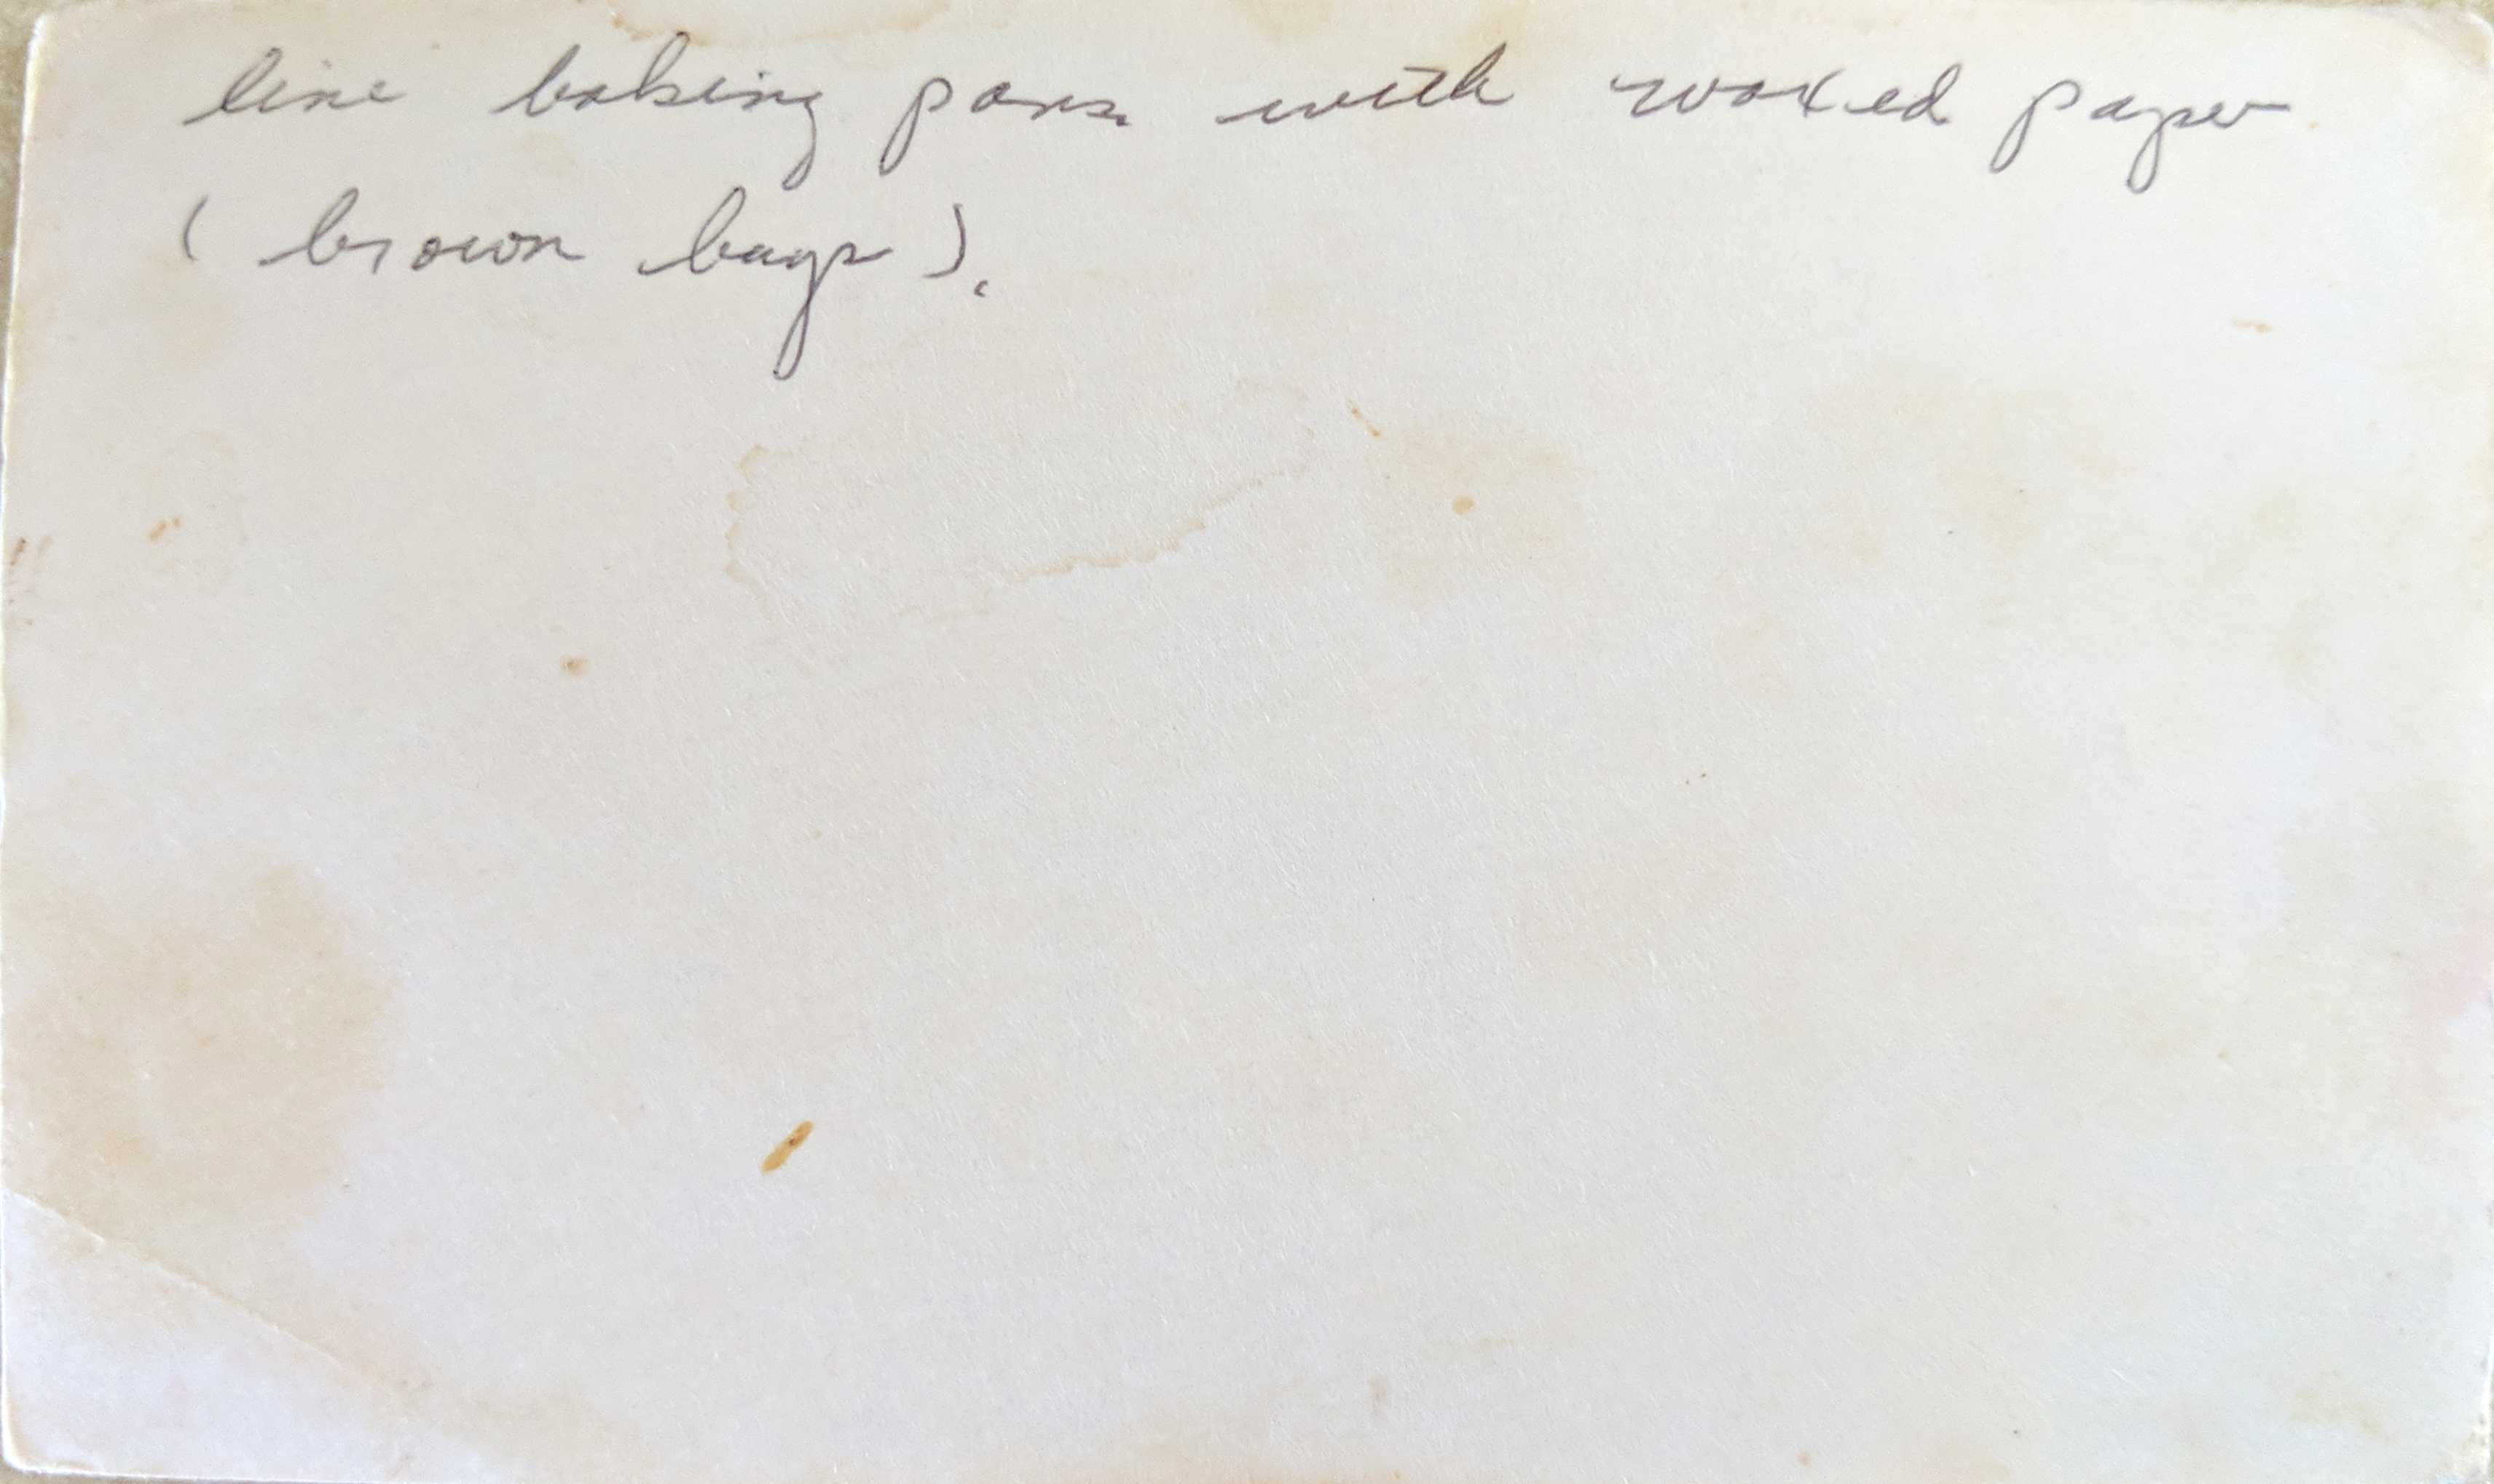 line baking pans with waxed paper
(brown bags).